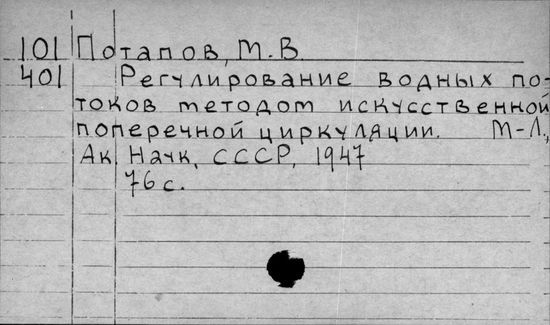 101 Потапов, М.В.
401 Регулирование водных по-
токов методом искусственной
поперечной циркуляции. М-Л.,
Ак. Наук, СССР, 1947
76 с.